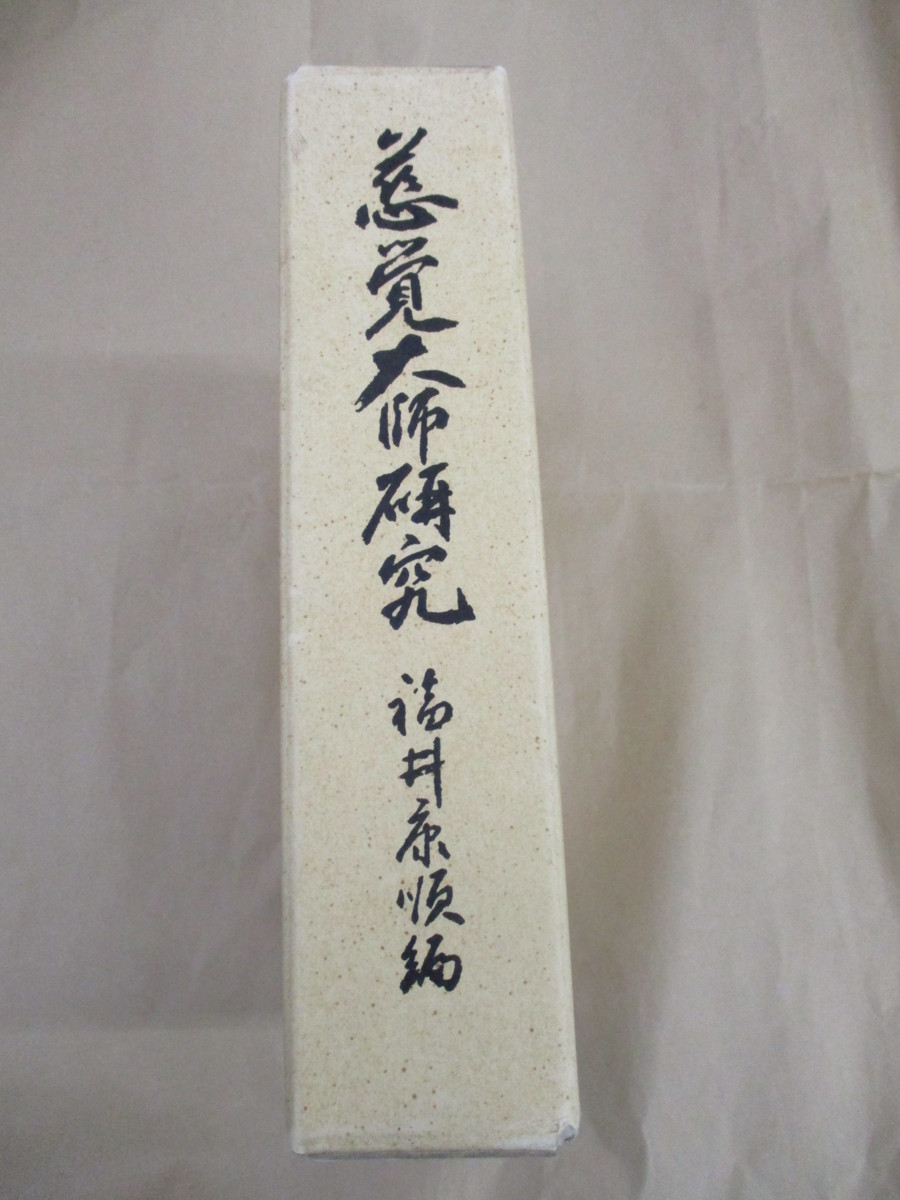 慈覚大師研究 福井康順編